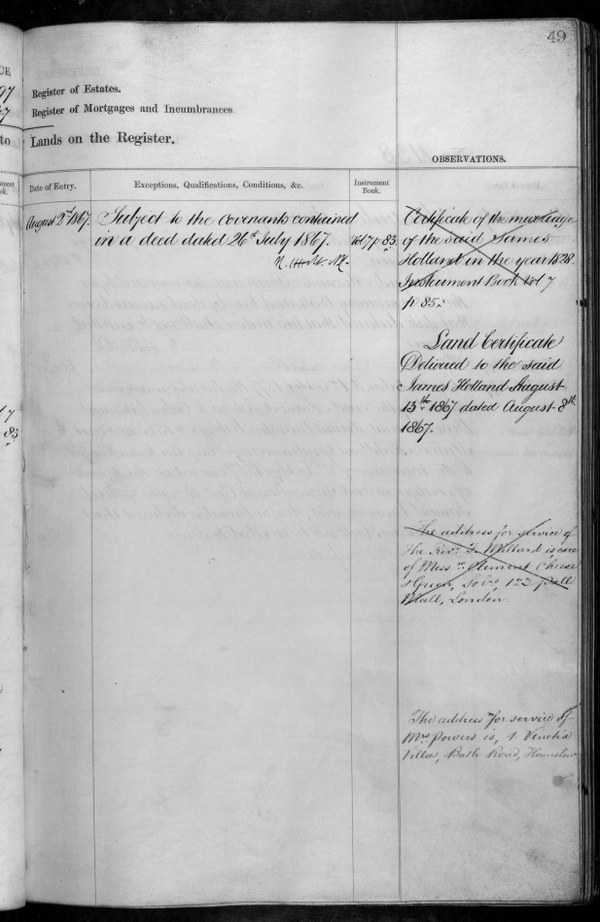 49
Register of Estates.
Register of Mortgages and Incumbrances.
Lands on the Register.
OBSERVATIONS.
Date of Entry.
Exceptions, Qualifications, Conditions, &c.
Instrument
Book.
August 2nd 1867.
Subject to the covenants contained
in a deed dated 26th July 1867.
Vol 7 p 83
Certificate of the marriage
of the said James
Holland in the year 1828
Instrument Book Vol 7
p 85.
Land Certificate
Delivered to the said
James Holland August
13th 1867 dated August 8th
1867.
The address for service of
the Revd. Millard is care
of Messrs. Clement Cheese
& Green, Solrs, 122 Pall
Mall, London.
The address for service of
Mrs Powers is, 1 Venetia
Villas, Bath Road, Hounslow